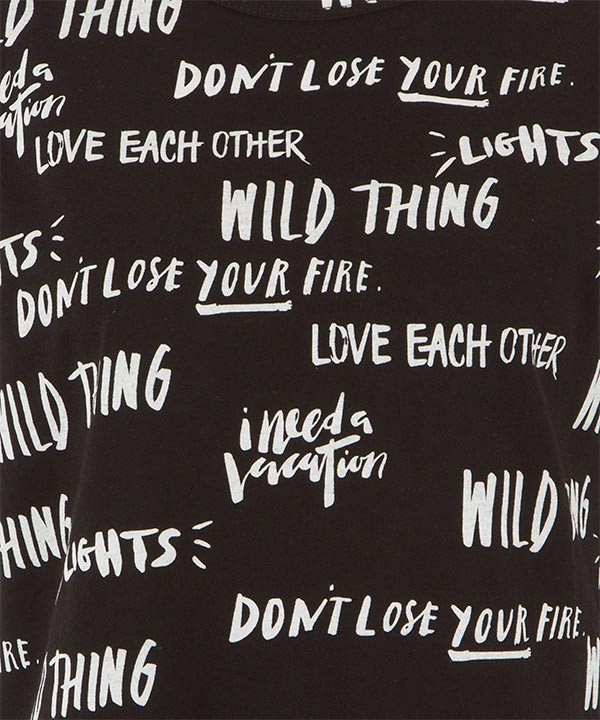 D THING
DON'T LOSE YOUR FIRE.
LOVE EACH OTHER
LIGHTS
WILD THING
TS
DON'T LOSE YOUR FIRE.
LOVE EACH OTHER
WILD THING
i need a
vacation
WILD
NG
HING
LIGHTS
DON'T LOSE YOUR FIRE.
RE.
THING